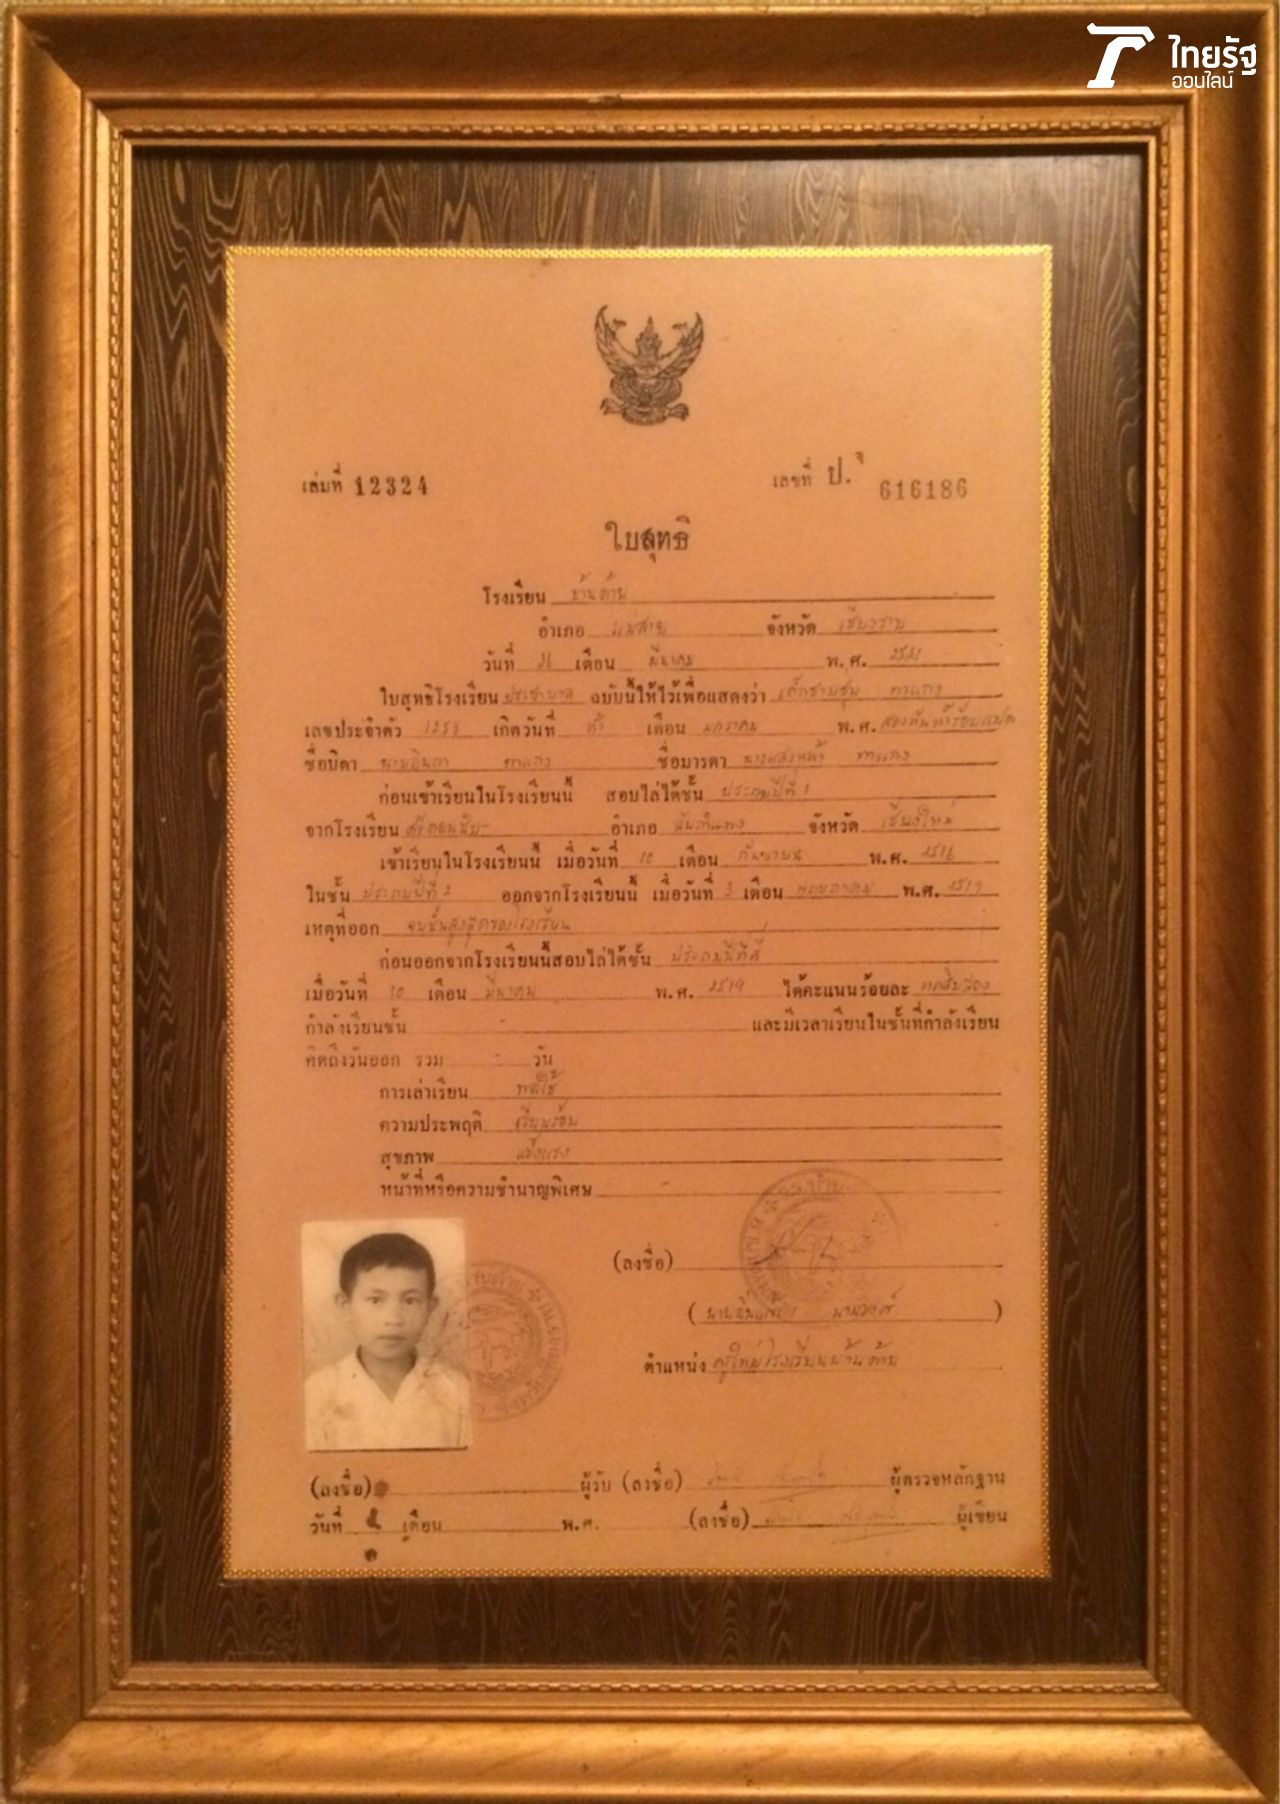 ไทยรัฐ
ออนไลน์
เล่มที่ 12324 เลขที่ ป. 616186
ใบสุทธิ
โรงเรียน บ้านด้าย
อำเภอ แม่สาย จังหวัด เชียงราย
วันที่ 26 เดือน มีนาคม พ.ศ. 2521
ใบสุทธิโรงเรียน ประชาบาล ฉบับนี้ให้ไว้เพื่อแสดงว่า เด็กชาย
เลขประจำตัว 1253 เกิดวันที่ ห้า เดือน มกราคม พ.ศ. สองพันห้าร้อยแปด
ชื่อบิดา นาย ชื่อมารดา นางแสงหล้า
ก่อนเข้าเรียนในโรงเรียนนี้ สอบไล่ได้ชั้น ประถมปีที่ 1
จากโรงเรียน อำเภอ สันกำแพง จังหวัด เชียงใหม่
เข้าเรียนในโรงเรียนนี้ เมื่อวันที่ 10 เดือน กันยายน พ.ศ. 2516
ในชั้น ประถมปีที่ 2 ออกจากโรงเรียนนี้ เมื่อวันที่ 3 เดือน พฤษภาคม พ.ศ. 2519
เหตุที่ออก จบชั้นสูงสุดของโรงเรียน
ก่อนออกจากโรงเรียนนี้สอบไล่ได้ชั้น ประถมปีที่สี่
เมื่อวันที่ 30 เดือน มีนาคม พ.ศ. 2519 ได้คะแนนร้อยละ หกสิบสอง
กำลังเรียนชั้น - และมีเวลาเรียนในชั้นที่กำลังเรียน
คิดถึงวันออก รวม - วัน
การเล่าเรียน พอใช้
ความประพฤติ เรียบร้อย
สุขภาพ แข็งแรง
หน้าที่หรือความชำนาญพิเศษ -
(ลงชื่อ)
( นาย )
ตำแหน่ง ครูใหญ่โรงเรียนบ้านด้าย
(ลงชื่อ) ผู้รับ (ลงชื่อ) ผู้ตรวจหลักฐาน
วันที่ เดือน พ.ศ. (ลงชื่อ) ผู้เขียน